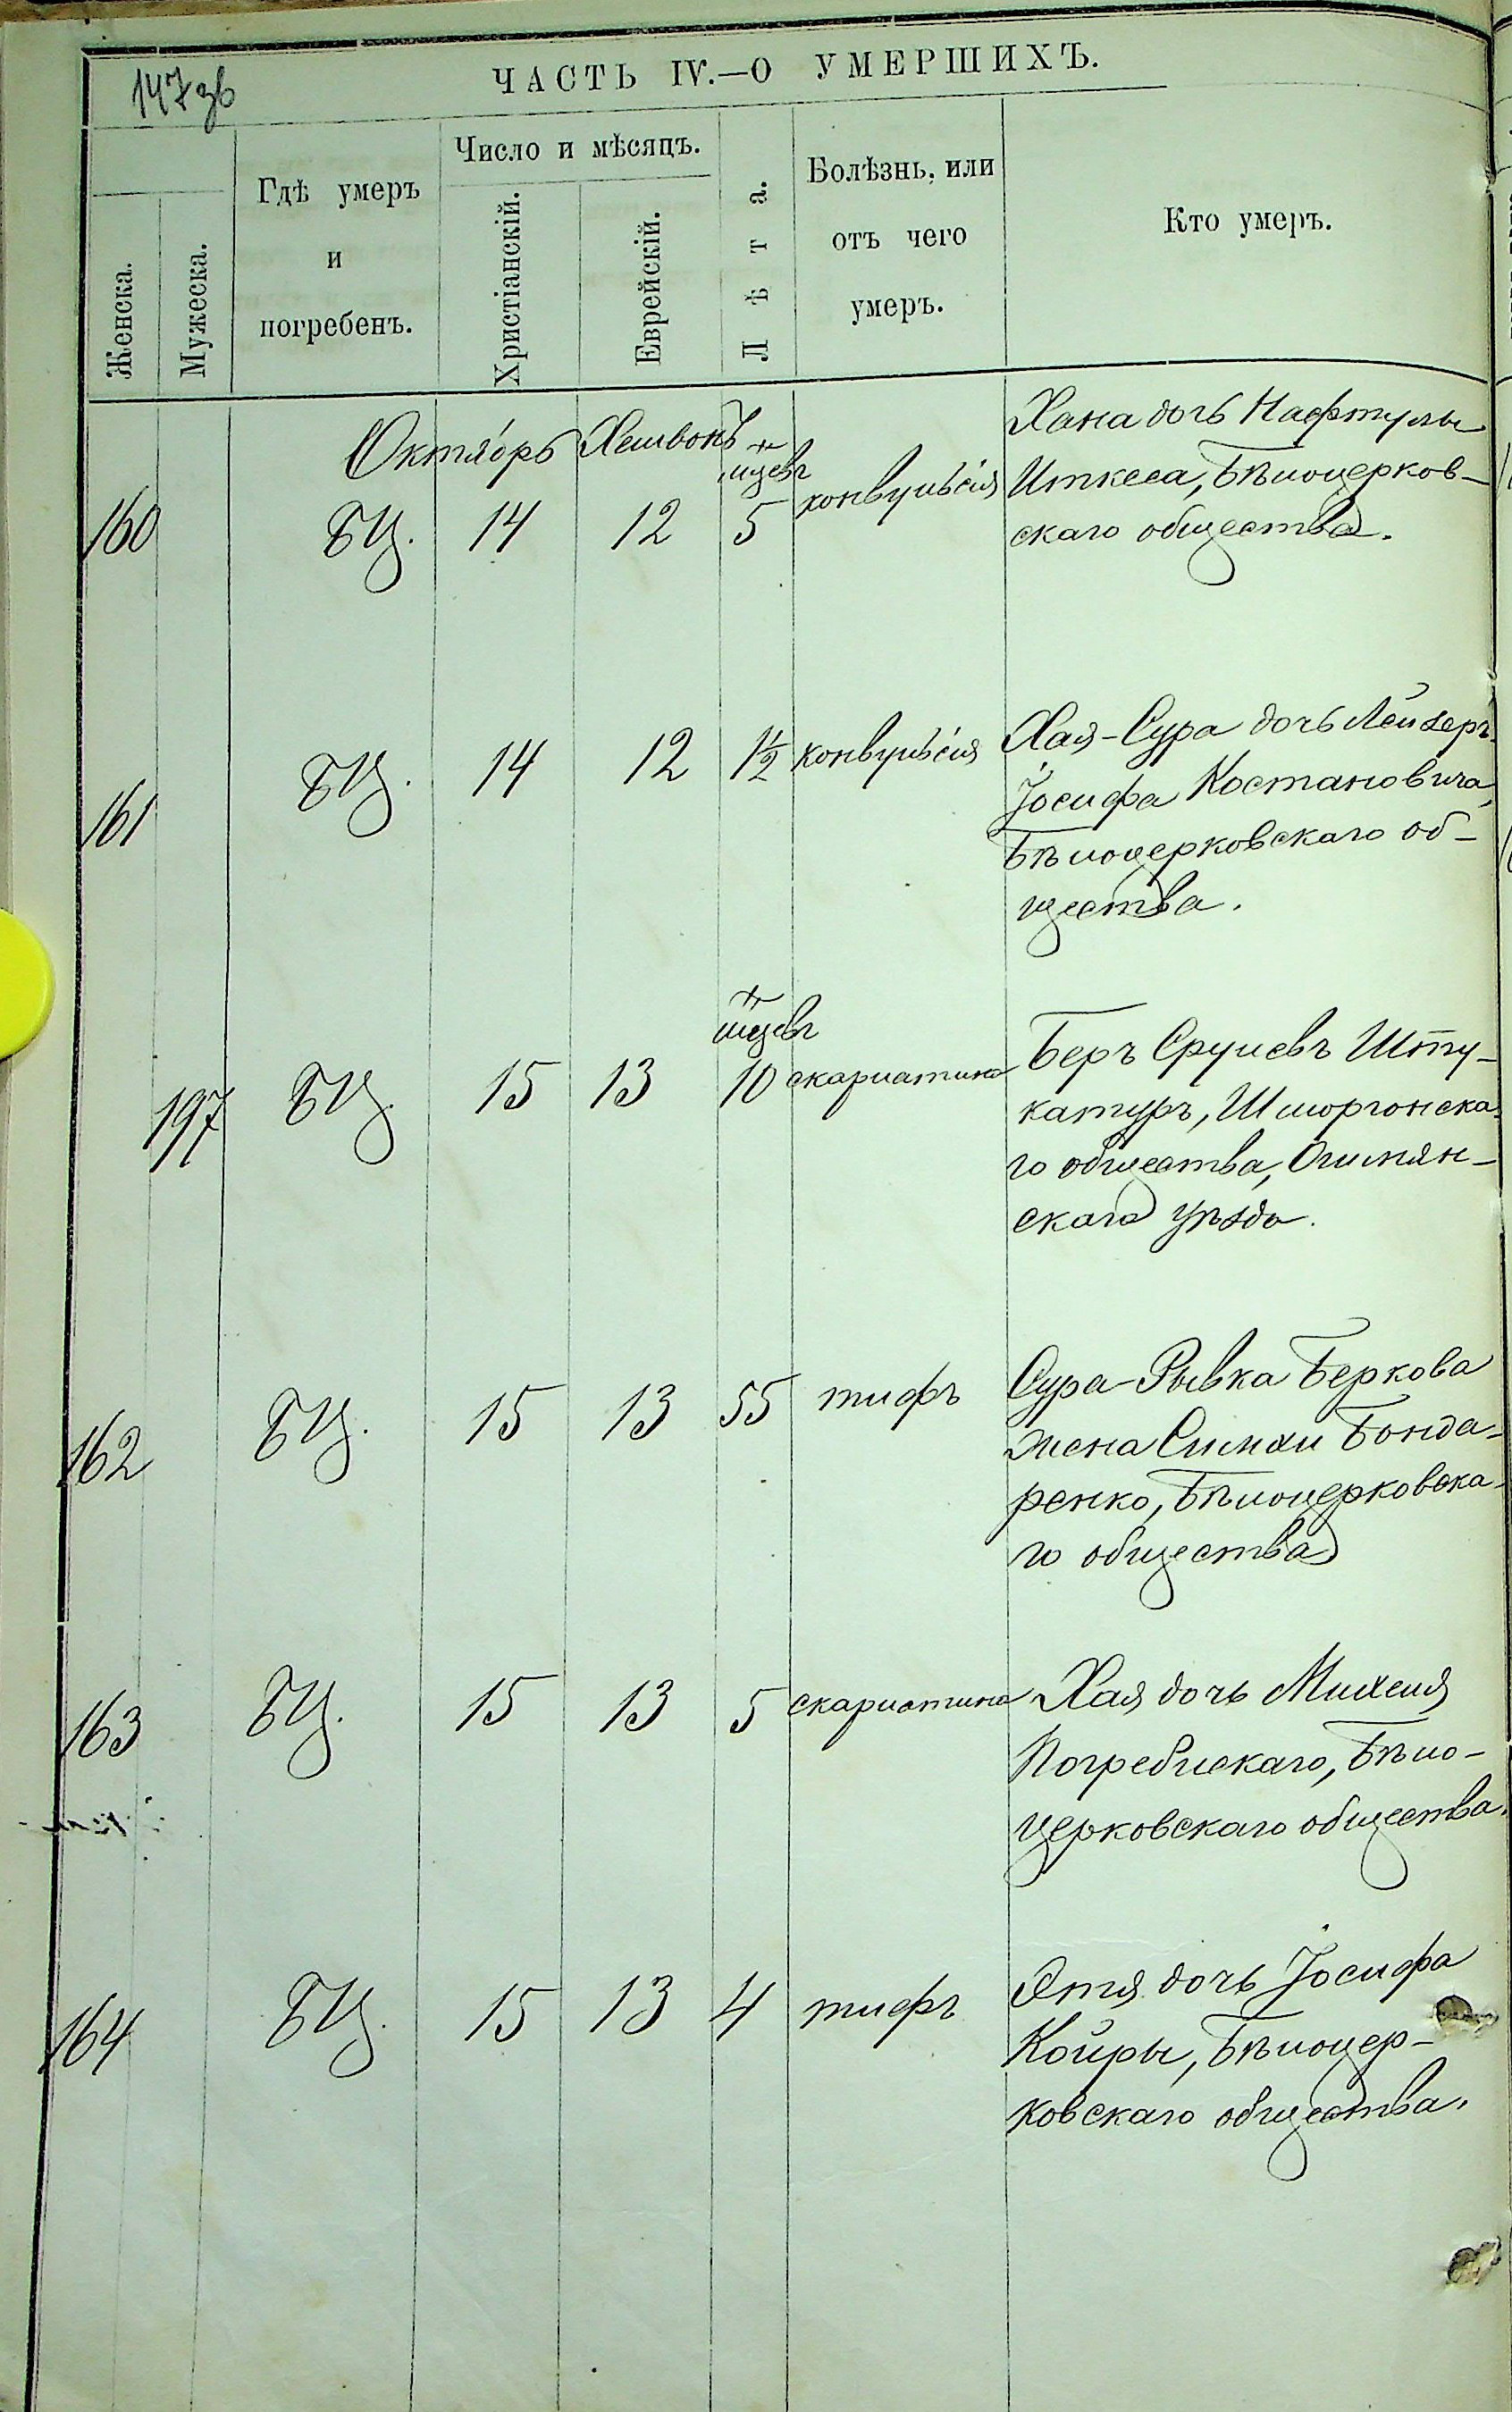 147 зв
ЧАСТЬ IV.—О УМЕРШИХЪ.
Женска.
Мужеска.
Гдѣ умеръ
и
погребенъ.
Число и мѣсяцъ.
Христіанскій.
Еврейскій.
Лѣта.
Болѣзнь, или
отъ чего
умеръ.
Кто умеръ.
Октябрь Хешвонъ
160 БЦ. 14 12 м-цевъ 5 конвульсія
Хана дочь Нафтулы
Иткеса, Бѣлоцерков-
скаго общества.
161 БЦ. 14 12 1½ конвульсія
Хая-Сура дочь Лейзеръ
Іосифа Костановича,
Бѣлоцерковскаго об-
щества.
197 БЦ. 15 13 м-цевъ 10 скарлатина
Беръ Срулевъ Шту-
катуръ, Шморгонска-
го общества, Ошмян-
скаго уѣзда.
162 БЦ. 15 13 55 тифъ
Сура-Рывка Беркова
жена Симхи Бонда-
ренко, Бѣлоцерковска-
го общества
163 БЦ. 15 13 5 скарлатина
Хая дочь Михеля
Погребискаго, Бѣло-
церковскаго общества.
164 БЦ. 15 13 4 тифъ
Этя дочь Іосифа
Койры, Бѣлоцер-
ковскаго общества.